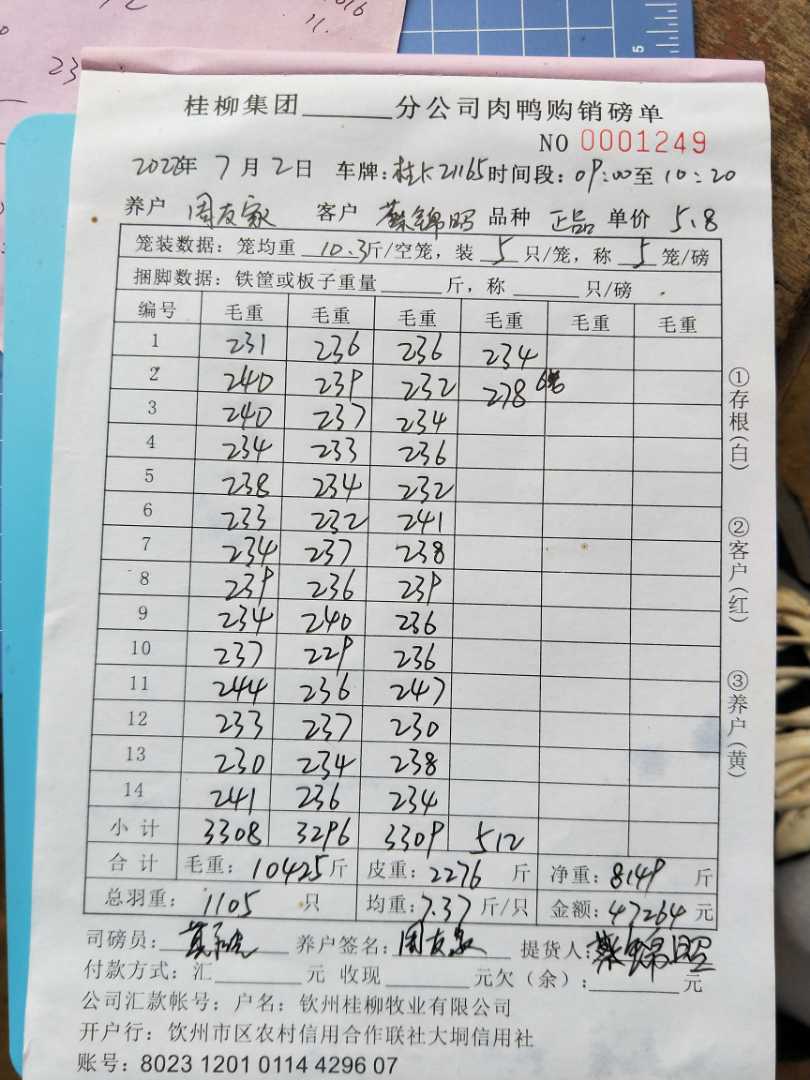 桂柳集团______分公司肉鸭购销磅单
NO 0001249
2022年 7 月 2 日 车牌:桂K21165 时间段:09:00至10:20
养户 周友家 客户 蔡锦昭 品种 正品 单价 5.8
笼装数据:笼均重 10.3斤/空笼,装 5 只/笼,称 5 笼/磅
捆脚数据:铁筐或板子重量______斤,称______只/磅
编号 毛重 毛重 毛重 毛重 毛重 毛重
1 231 236 236 234
2 240 239 232 278 6笼
3 240 237 234
4 234 233 236
5 238 234 232
6 233 232 241
7 234 237 238
8 239 236 239
9 234 240 236
10 237 229 236
11 244 236 247
12 233 237 230
13 230 234 238
14 241 236 234
小计 3308 3296 3309 512
合计 毛重:10425斤 皮重:2276 斤 净重:8149 斤
总羽重:1105 只 均重:7.37斤/只 金额:47264元
司磅员: 养户签名:周友家 提货人:蔡锦昭
付款方式:汇______元 收现______元欠(余):______元
公司汇款帐号:户名:钦州桂柳牧业有限公司
开户行:钦州市区农村信用合作联社大垌信用社
账号:8023 1201 0114 4296 07
①存根(白) ②客户(红) ③养户(黄)